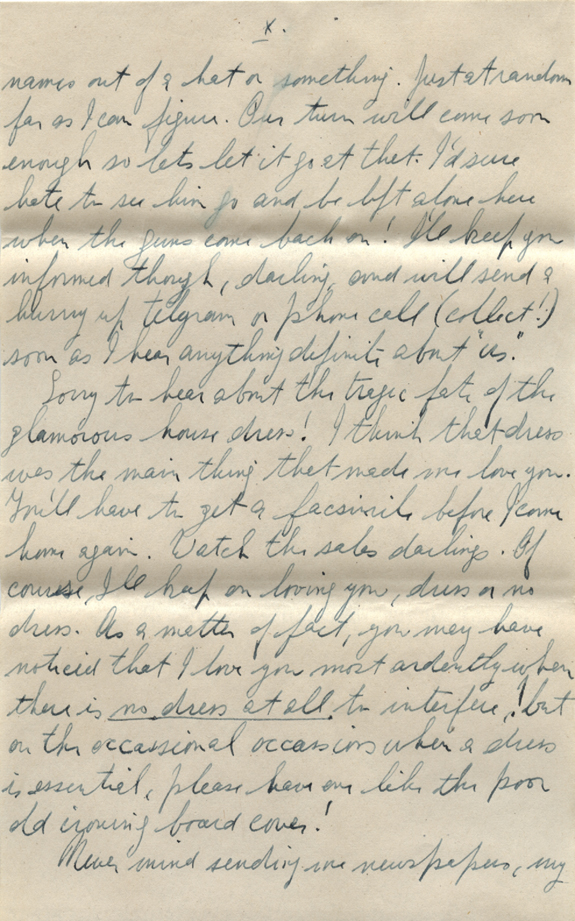 X.
names out of a hat or something. Just at random
far as I can figure. Our turn will come soon
enough so lets let it go at that. I'd sure
hate to see him go and be left alone here
when the guns come back on! I'll keep you
informed though, darling, and will send a
hurry up telgram or phone call (collect!)
soon as I hear anything definite about "us."
Sorry to hear about the tragic fate of the
glamorous house dress! I think that dress
was the main thing that made me love you.
You'll have to get a facsimile before I come
home again. Watch the sales darlings. Of
course, I'll keep on loving you, dress or no
dress. As a matter of fact, you may have
noticed that I love you most ardently when
there is no dress at all to interfere! but
on the occassional occassions when a dress
is essential, please have one like the poor
old ironing board cover!
Never mind sending me newspapers, my